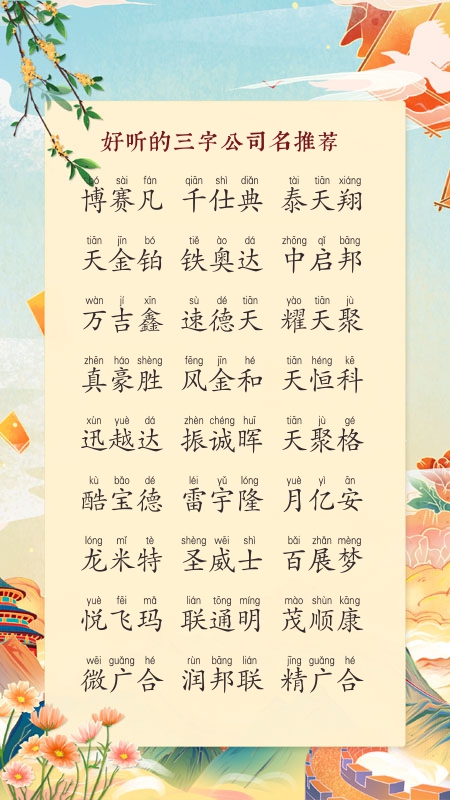 好听的三字公司名推荐
bó sài fán qiān shì diǎn tài tiān xiáng
博赛凡 千仕典 泰天翔
tiān jīn bó tiě ào dá zhōng qǐ bāng
天金铂 铁奥达 中启邦
wàn jí xīn sù dé tiān yào tiān jù
万吉鑫 速德天 耀天聚
zhēn háo shèng fēng jīn hé tiān héng kē
真豪胜 风金和 天恒科
xùn yuè dá zhèn chéng huī tiān jù gé
迅越达 振诚晖 天聚格
kù bǎo dé léi yǔ lóng yuè yì ān
酷宝德 雷宇隆 月亿安
lóng mǐ tè shèng wēi shì bǎi zhǎn mèng
龙米特 圣威士 百展梦
yuè fēi mǎ lián tōng míng mào shùn kāng
悦飞玛 联通明 茂顺康
wēi guǎng hé rùn bāng lián jīng guǎng hé
微广合 润邦联 精广合